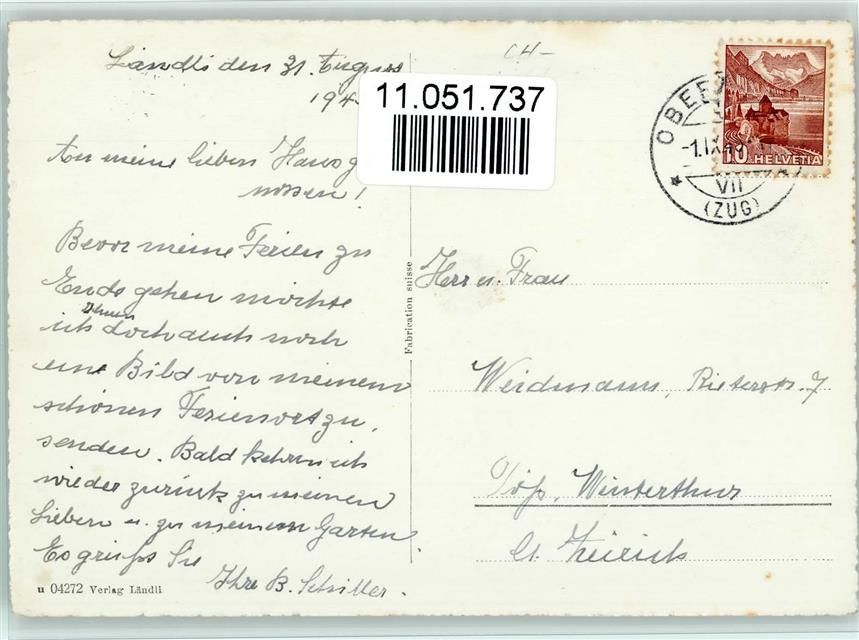 Ländli den 31. August
194
CH-
11.051.737
An meine lieben Hausge
nossen!
Bevor meine Ferien zu
Ende gehen möchte
ich Ihnen doch auch noch
eine Bild von meinem
schönen Ferienort zu,
senden. Bald kehre ich
wieder zurück zu meinen
Lieben u. zu meinem Garten.
Es grüsst Sie
Ihre B. Schiller.
u 04272 Verlag Ländli
Fabrication suisse
OBER
-1.IX.4
VII
(ZUG)
10 HELVETIA
Herr u. Frau
Weidmann, Rieterstr. 7
Töss, Winterthur
Ct. Zürich